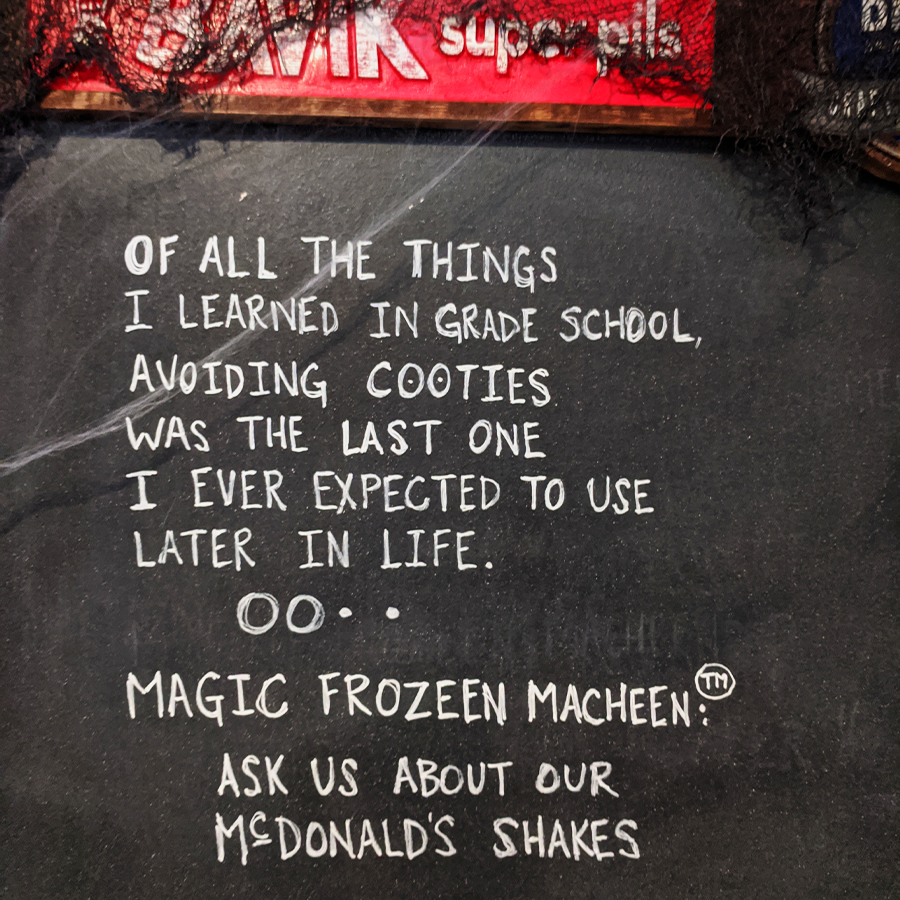 superpils
OF ALL THE THINGS
I LEARNED IN GRADE SCHOOL,
AVOIDING COOTIES
WAS THE LAST ONE
I EVER EXPECTED TO USE
LATER IN LIFE.
OO··
MAGIC FROZEEN MACHEEN:™
ASK US ABOUT OUR
McDONALD'S SHAKES